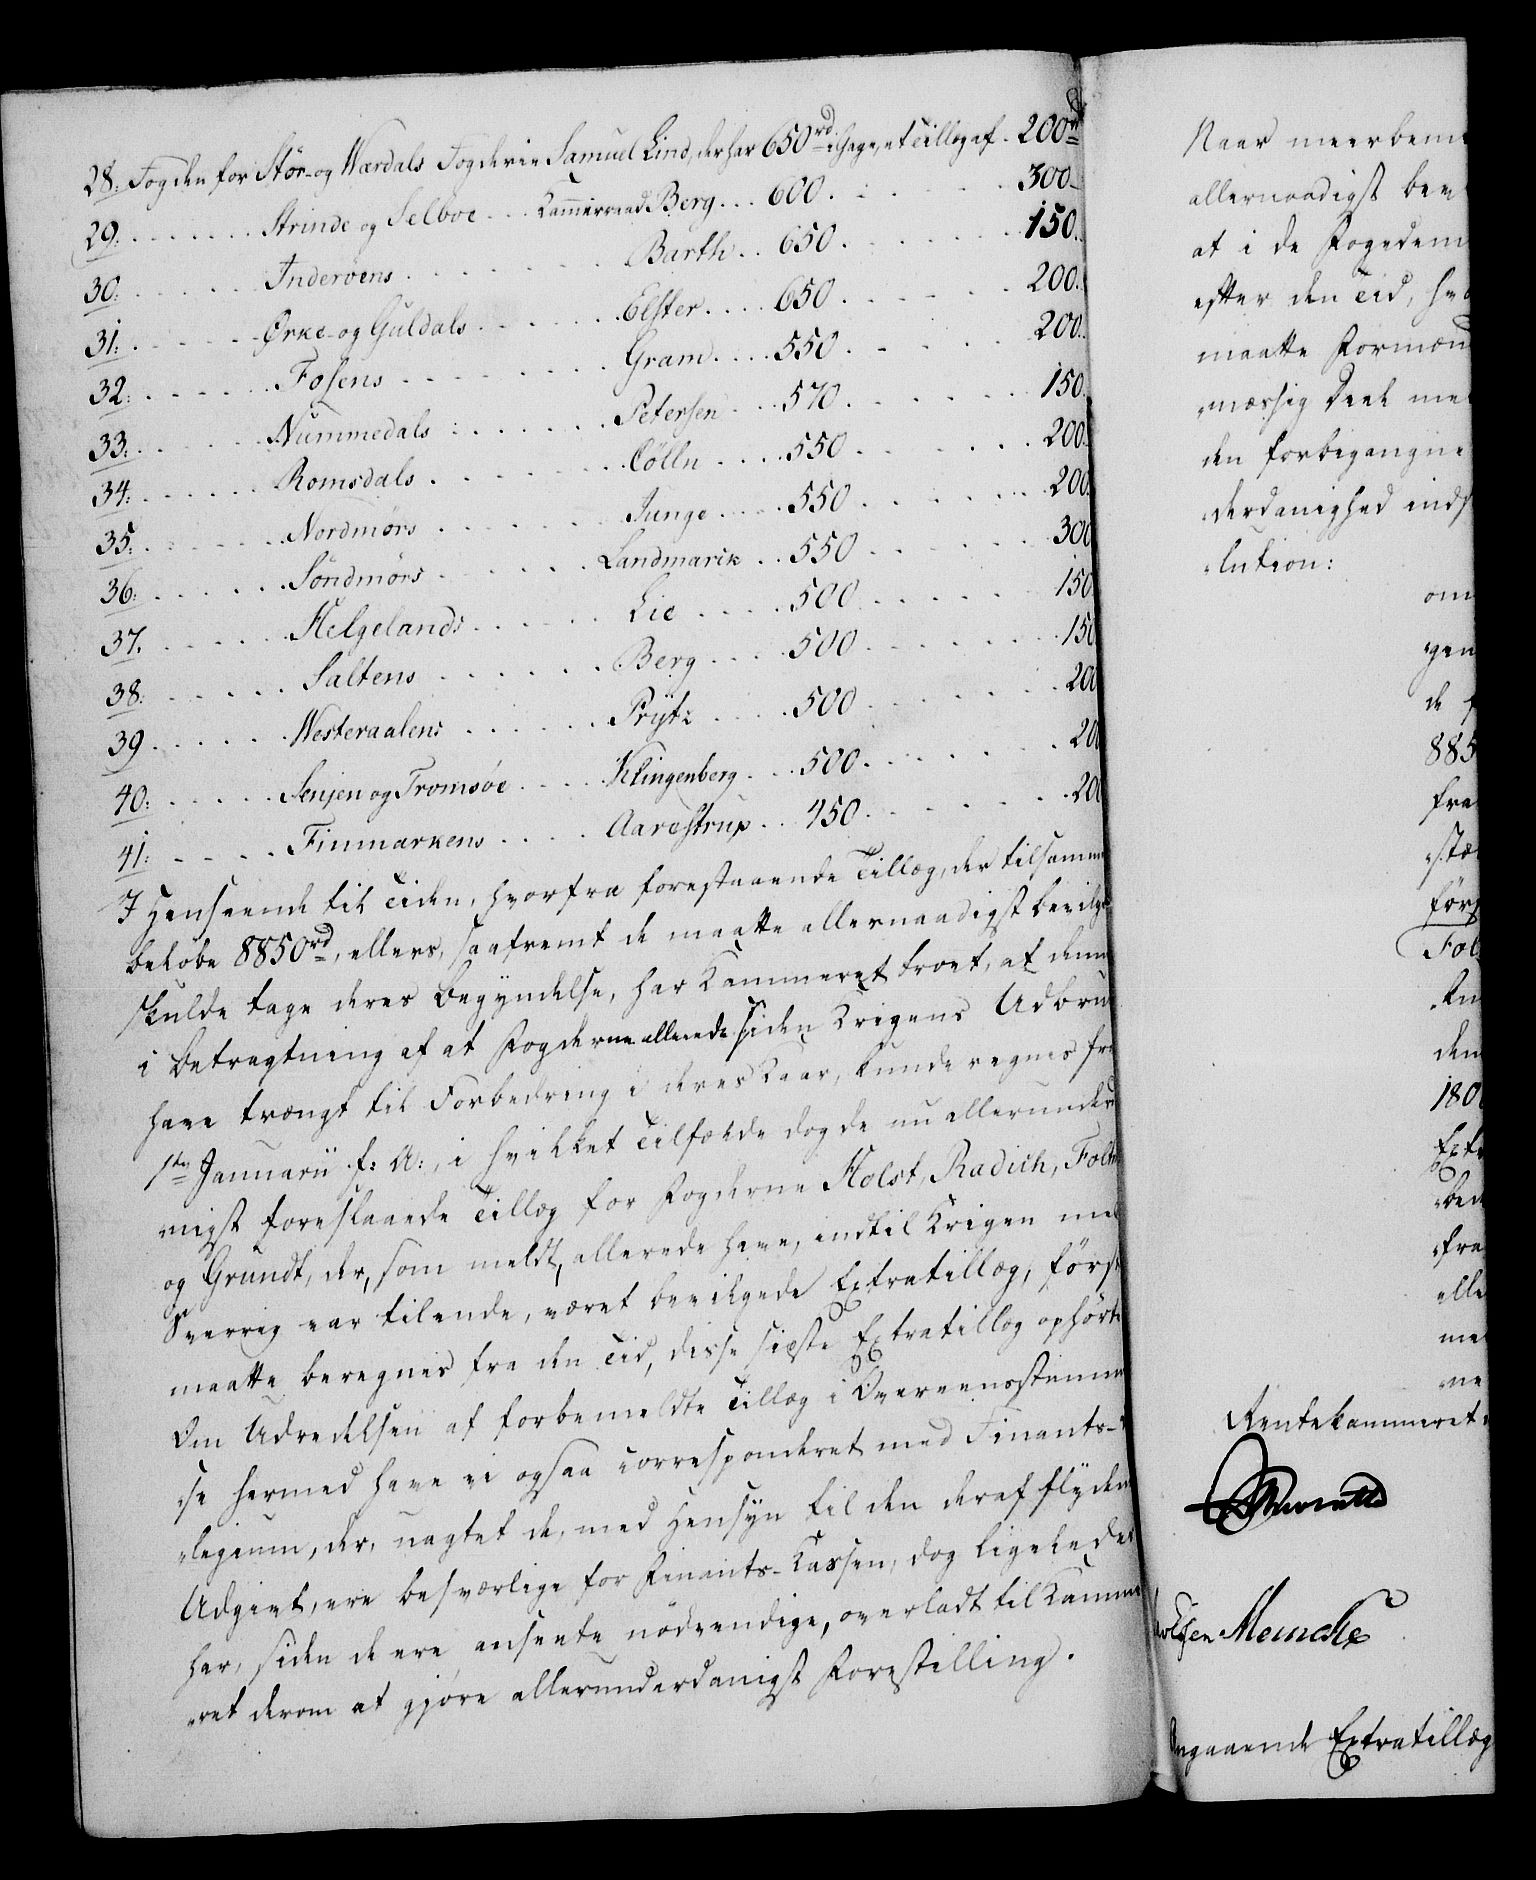 28: Fogden for Stör- og Wærdals Fogderie Samuel Lind, der har 650rd i Gage, et Tillæg af . 200rd
29: . . . . . . . Strinde og Selboe . . . Kammerraad Berg . . . 600 . . . . . . 300
30: . . . . . . Inderöens . . . . . . . Barth . . 650 . . . . . . 150.
31: . . . . . . Örke- og Guldals . . . . . . Elster . . . . 650 . . . . . . 200.
32: . . . . . . Fosens . . . . . . . . Gram . . . . 550 . . . . . . 200.
33: . . . . . . Nummedals : . . . . . . Petersen . . . 570 . . . . . . 150.
34: . . . . . . Romsdals . . . . . . . Cölln . . . . 550 . . . . . . 200.
35: . . . . . . Nordmörs . . . . . . . Junge . . . . 550 . . . . . . 200.
36: . . . . . . Söndmörs . . . . . . Landmark . . 550 . . . . . . 300
37. . . . . . . Helgelands . . . . . . Lie . . . . 500 . . . . . . 150
38: . . . . . . Saltens . . . . . . . Berg . . . . 500 . . . . . . 150
39 . . . . . . Westeraalens . . . . . Prÿtz . . . . 500 . . . . . . 200
40: . . . . . . Senjen og Tromsöe . . . . Klingenberg . . . 500 . . . . . . 200
41: . . . . . Finmarkens . . . . Aarestrup . . 450 . . . . . . 200
I Henseende til Tiden, hvorfra forestaaende Tillæg, der tilsamm
beløbe 8850rd, ellers, saafremt de maatte allernaadigst bevilg
skulde tage deres Begyndelse, har Kammeret troet, at denn
i Betragtning af at Fogderne allerede siden Krigens Udbru
have trængt til Forbedring i deres Kaar, kunde regnes fra
1ste Januarii f: A:, i hvilket Tilfælde dog de nu allerunder
nigst foreslaaede Tillæg for Fogderne Holst, Radich, Folt
og Grundt, der, som meldt, allerede have, indtil Krigen med
Sverrig var tilende, været bevilgede Extratillæg, först
maatte beregnes fra den Tid, disse sidste Extratillæg ophörte
Om Udredelsen af forbemeldte Tillæg i Overeensstemme
se hermed have vi ogsaa correspondert med Finants-
legium, der, uagtet de, med Hensyn til den deraf flyden
Udgivt, ere besværlige for Finants-Kassen, dog ligeledes
har, siden de ere ansete nödvendige, overladt til Kamme
ret derom at gjöre allerunderdanigst Forestilling.
Naar meerbem
allernaadigst bev
at i de Fogedem
efter den Tid, hv
maatte Formænd
mæssig Deel me
den forbigangne
derdanighed inds
lution:
om
gen
de f
885
fra
stæ
förs
Fol
ku
den
180
Extr
bed
fra
alle
me
ne
Rentekammeret
Meincke
Angaaende Extratillæg